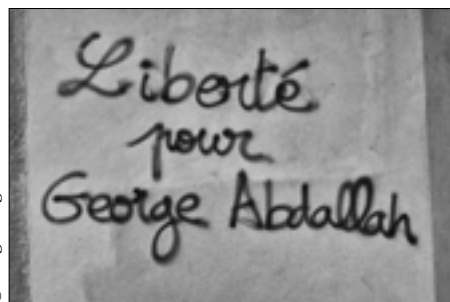 Liberté
pour
George Abdallah